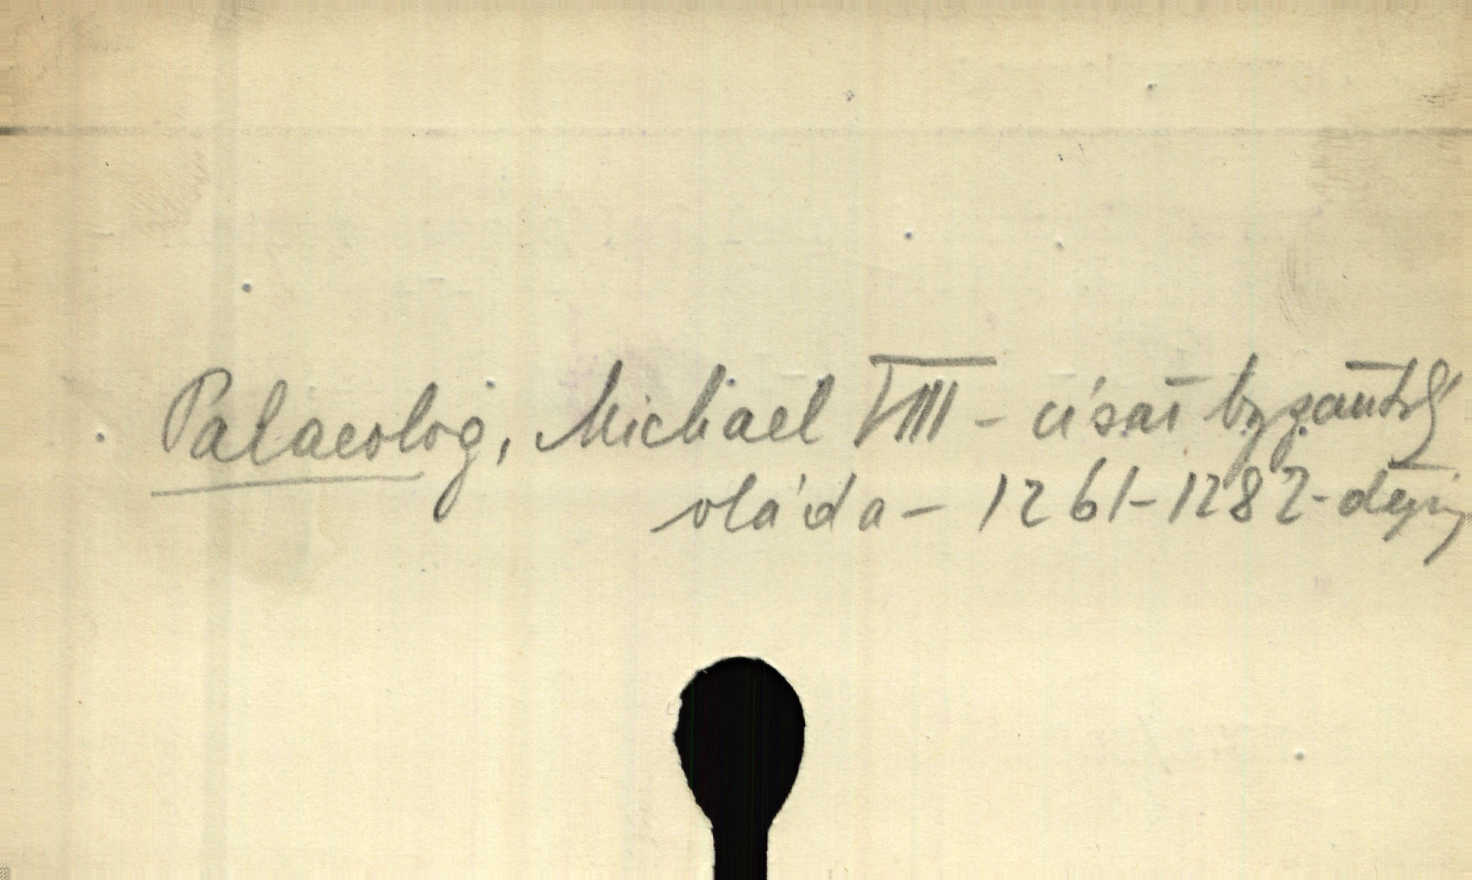 Palaeolog, Michael VIII - císař byzantský
vláda - 1261-1282 - dějiny